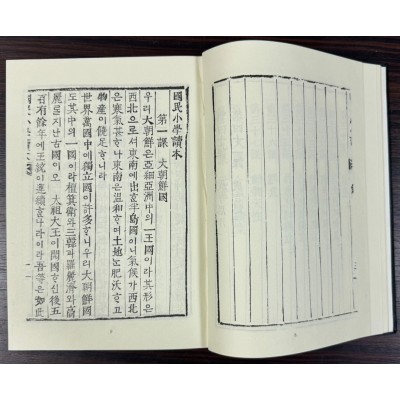 國民小學讀本
第一課 大朝鮮國
우리大朝鮮은亞細亞洲中의一王國이라其形은
西北으로셔東南에出한半島國이니氣候가西北
은寒氣甚하나東南은溫和하며土地는肥沃하고
物産이饒足하니라
世界萬國中에獨立國이許多하니우리大朝鮮國
도其中의一國이라檀箕衛와三韓과羅麗濟와高
麗를지난古國이오太祖大王이開國하신後五
百有餘年에王統이連續한나라이라吾等은如此